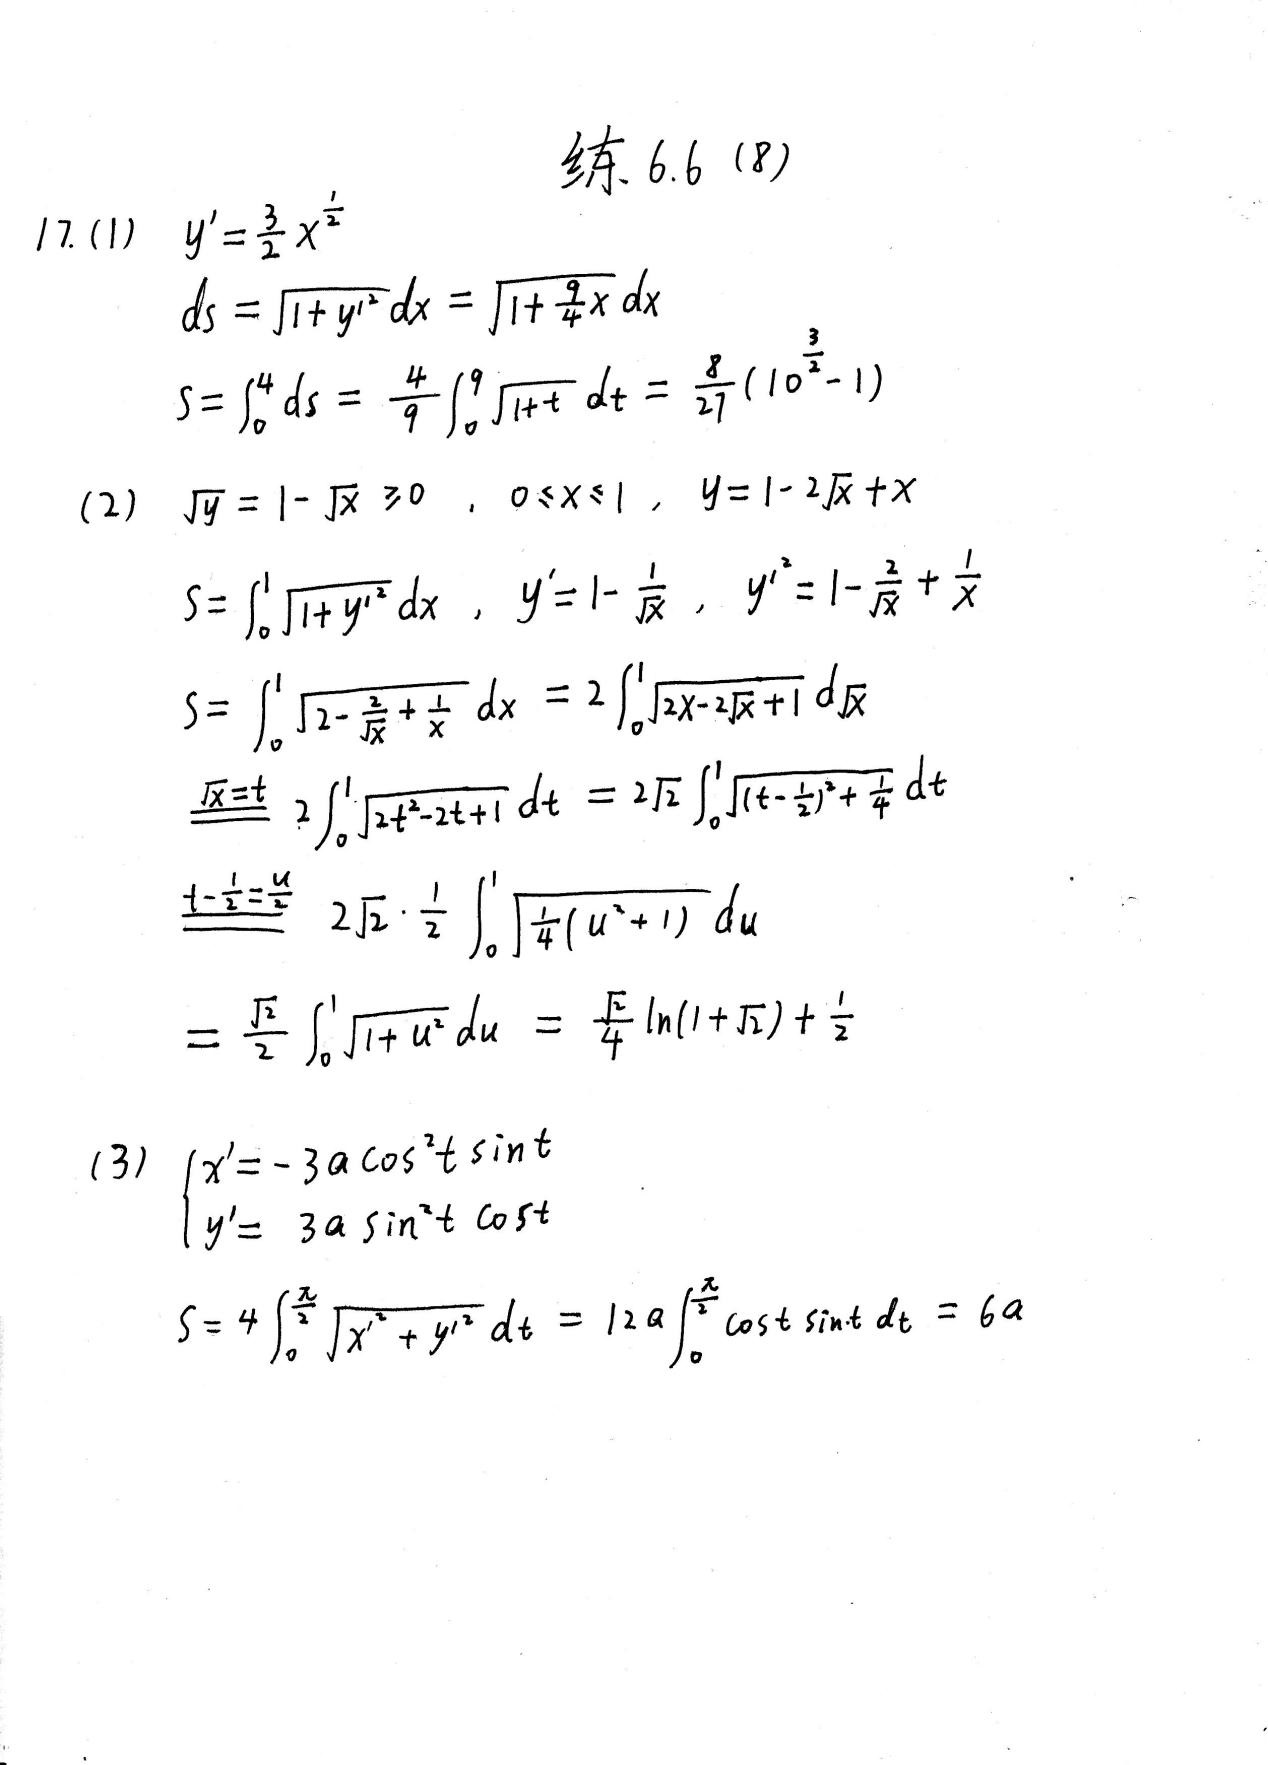 练 6.6 (8)
17. (1) y' = 3/2 x^(1/2)
ds = √(1+y'²) dx = √(1+9/4 x) dx
S = ∫₀⁴ ds = 4/9 ∫₀⁹ √(1+t) dt = 8/27 (10^(3/2) - 1)
(2) √y = 1-√x ≥0 , 0≤x≤1 , y = 1-2√x+x
S = ∫₀¹ √(1+y'²) dx , y' = 1- 1/√x , y'² = 1- 2/√x + 1/x
S = ∫₀¹ √(2- 2/√x + 1/x) dx = 2 ∫₀¹ √(2x-2√x+1) d√x
√x=t 2 ∫₀¹ √(2t²-2t+1) dt = 2√2 ∫₀¹ √((t-1/2)²+1/4) dt
t-1/2=u/2 2√2 · 1/2 ∫₀¹ √(1/4(u²+1)) du
= √2/2 ∫₀¹ √(1+u²) du = √2/4 ln(1+√2) + 1/2
(3) { x' = -3a cos²t sint
y' = 3a sin²t cost
S = 4 ∫₀^(π/2) √(x'²+y'²) dt = 12a ∫₀^(π/2) cost sint dt = 6a